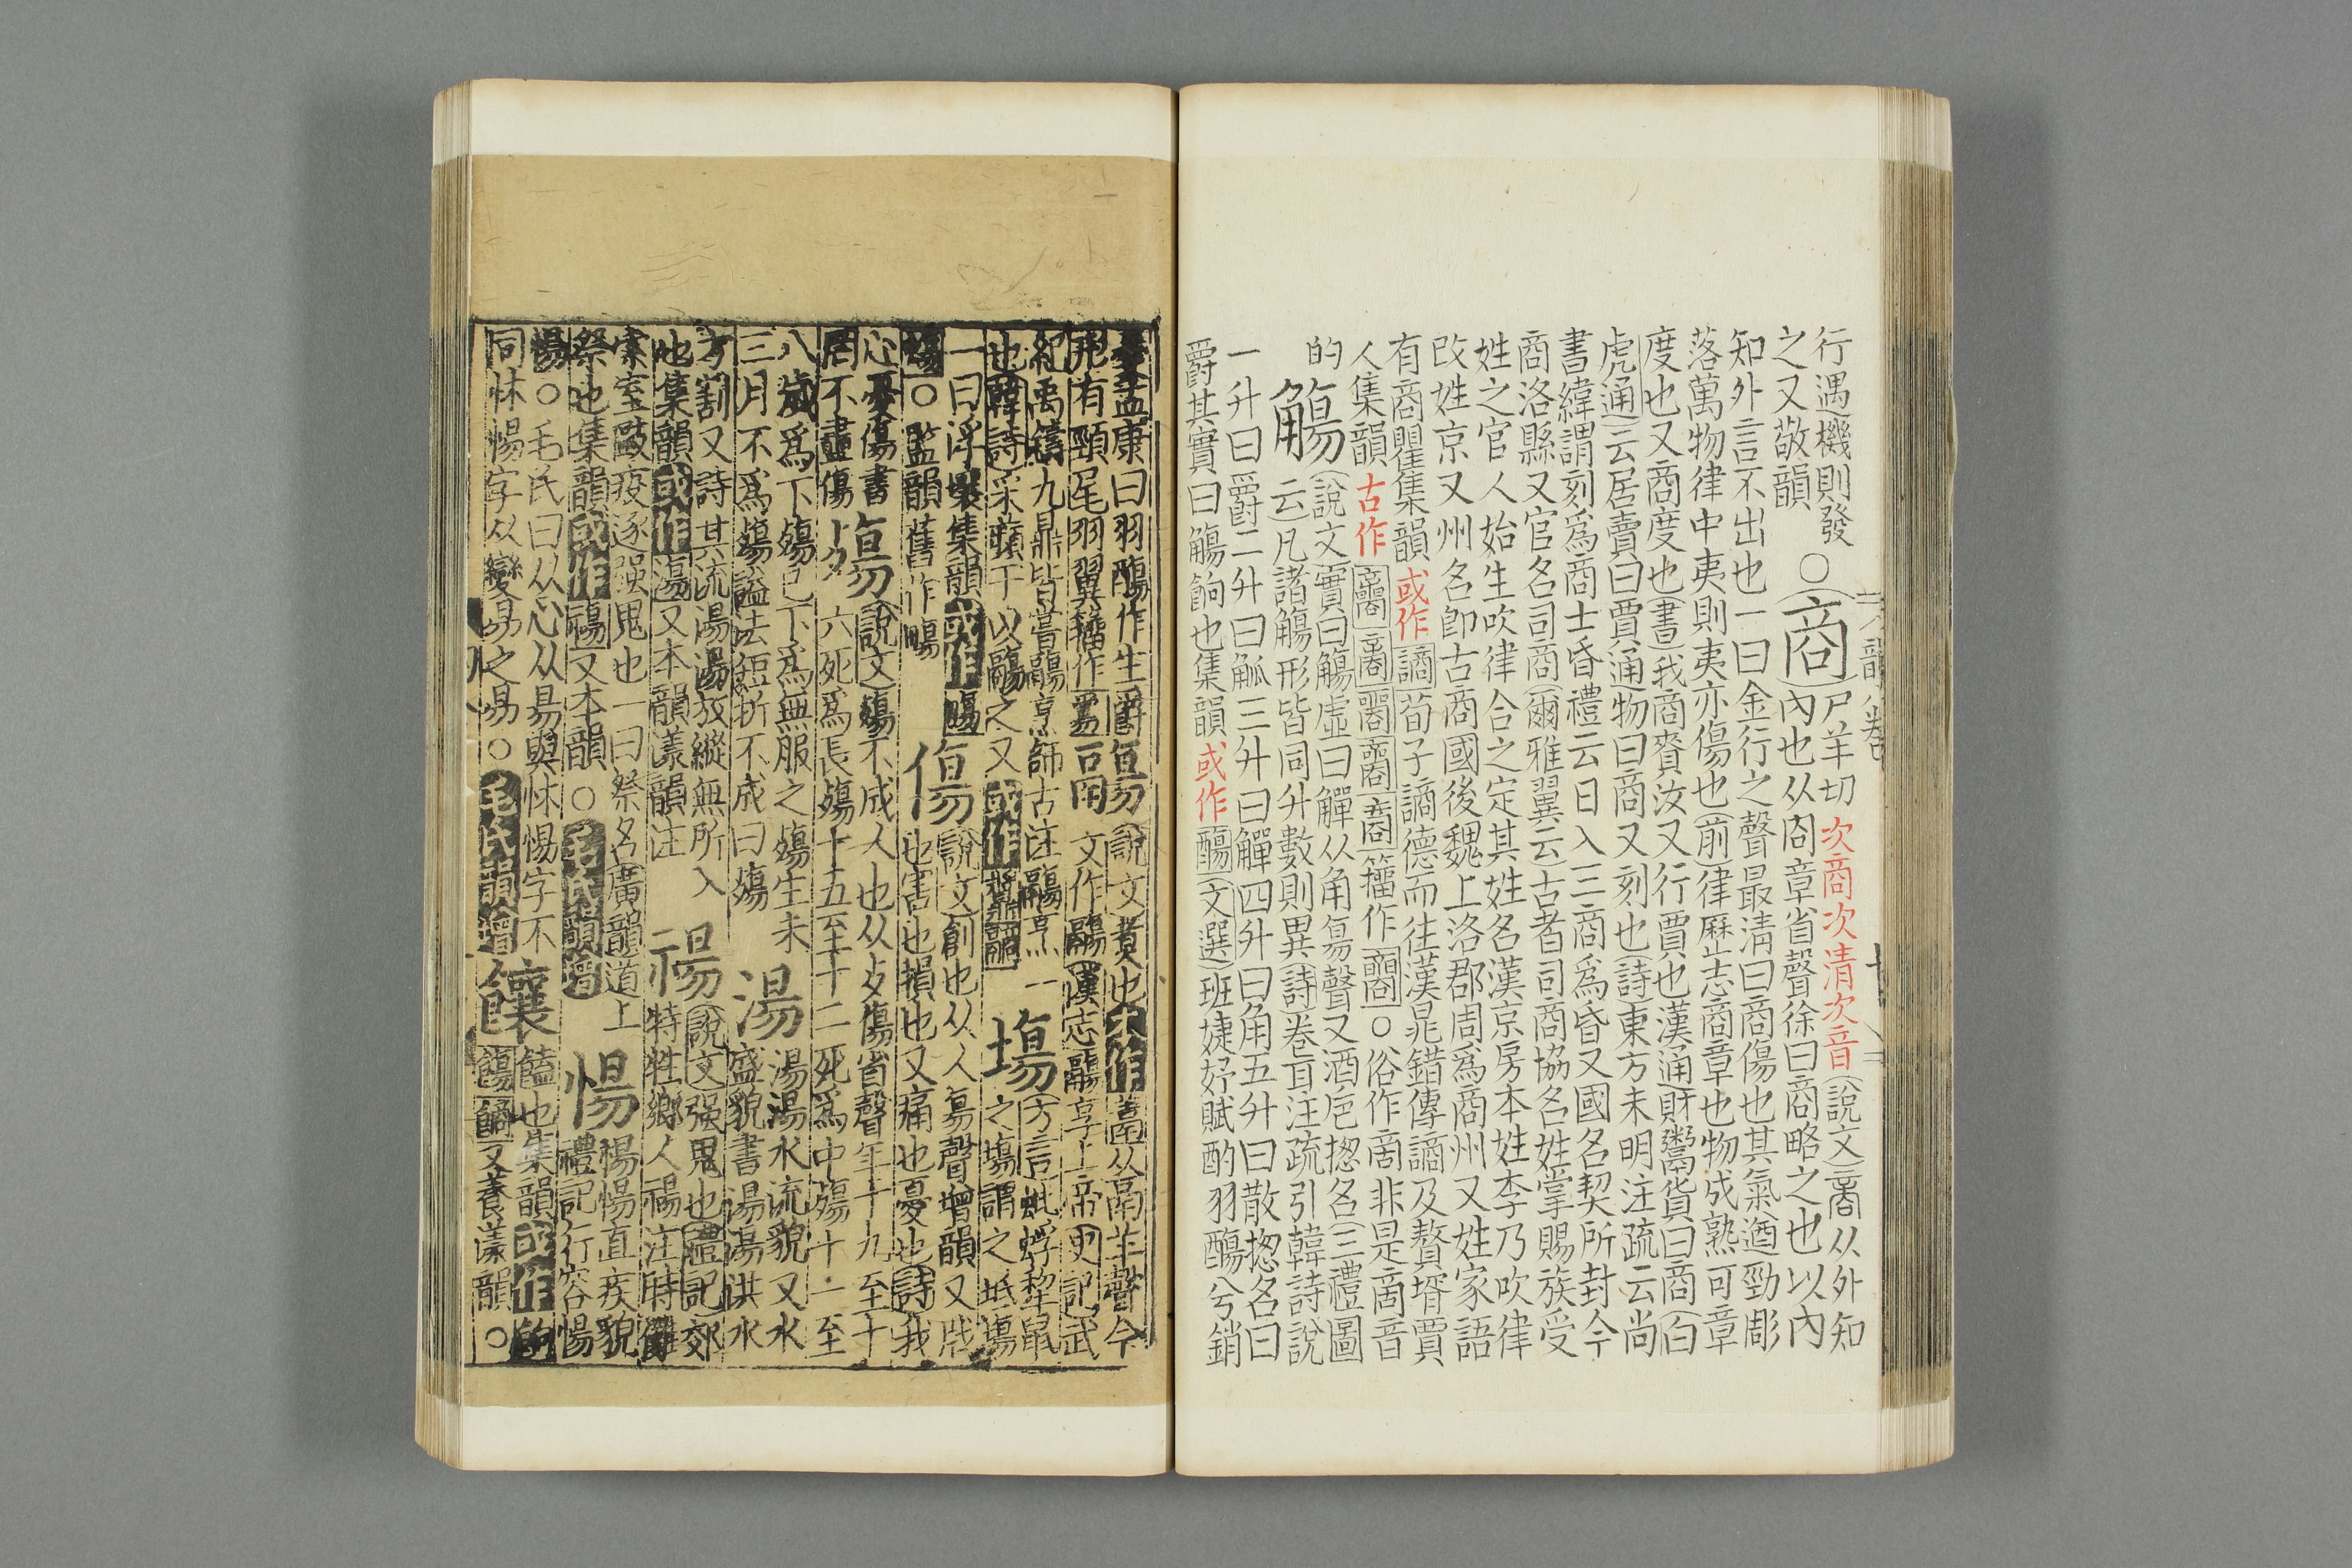 行遇機則發
之又敬韻
○商尸羊切次商次清次音說文㗊从外知
內也从㕯章省聲徐曰商略之也以內
知外言不出也一曰金行之聲最清曰商傷也其氣遒勁彫
落萬物律中夷則夷亦傷也前律厤志商章也物成熟可章
度也又商度也書我商賚汝又行賈也漢通財鬻貨曰商白
虎通云居賣曰賈通物曰商又刻也詩東方未明注疏云尚
書緯謂刻為商士昏禮云日入三商為昏又國名契所封今
商洛縣又官名司商爾雅翼云古者司商協名姓掌賜族受
姓之官人始生吹律合之定其姓名漢京房本姓李乃吹律
改姓京又州名即古商國後魏上洛郡周為商州又姓家語
有商瞿集韻或作謫荀子謫德而往漢鼂錯傳謫及贅壻賈
人集韻古作籀作○俗作啇非是啇音
的
觴說文實曰觴虛曰觶从角昜聲又酒卮揔名三禮圖
云凡諸觴形皆同升數則異詩卷耳注疏引韓詩說
一升曰爵二升曰觚三升曰觶四升曰角五升曰散揔名曰
爵其實曰觴餉也集韻或作䣊文選班婕妤賦酌羽䣊兮銷
孟康曰羽䣊作生爵
形有頭尾羽翼籀作
䵮說文煑也从鬲羊聲今
文作鬺漢志鬺亨上帝史記武
紀禹鑄九鼎皆嘗鬺烹師古注鬺烹一
也韓詩采蘋于以鬺之又或作
塲方言蚍蜉犂鼠
之塲謂之坻塲
一曰浮壤集韻或作
○監韻舊作
傷說文創也从人昜聲增韻又戕
也害也損也又痛也憂也詩我
心憂傷書
不盡傷
殤說文殤不成人也从歺傷省聲年十九至十
六死為長殤十五至十二死為中殤十一至
八歲為下殤已下為無服之殤生未
三月不為殤謚法短折不成曰殤
湯湯湯水流貌又水
盛貌書湯湯洪水
方割又詩其流湯湯放縱無所入
也集韻或作又本韻漾韻注
禓說文强鬼也禮記郊
特牲鄉人禓注時儺
索室敺疫逐强鬼也一曰祭名廣韻道上
祭也集韻或作又本韻○毛氏韻增
愓禓愓直疾貌
禮記行容愓
愓○毛氏曰从心从昜與怵惕字不
同怵惕字从變易之易○毛氏韻增
饟饁也集韻或作餉
又養漾韻○